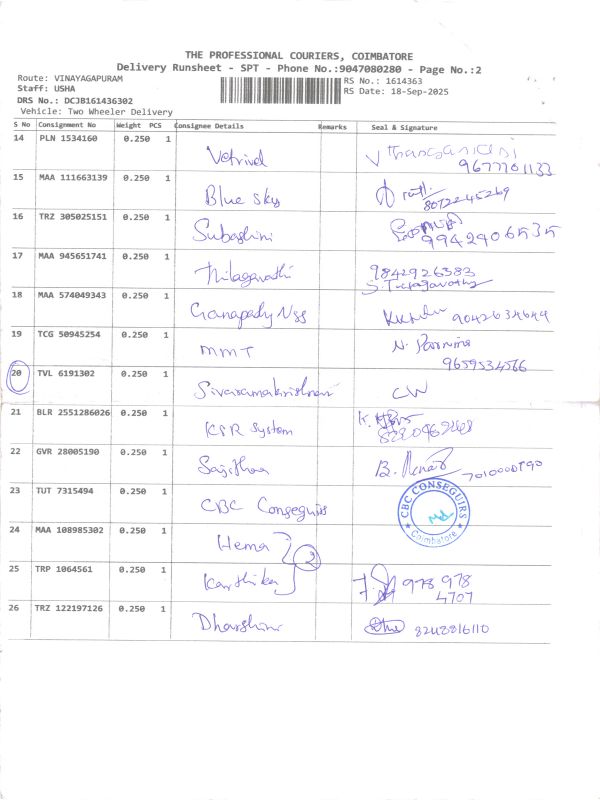 THE PROFESSIONAL COURIERS, COIMBATORE
Delivery Runsheet - SPT - Phone No.:9047080280 - Page No.:2
Route: VINAYAGAPURAM RS No.: 1614363
Staff: USHA RS Date: 18-Sep-2025
DRS No.: DCJB161436302
Vehicle: Two Wheeler Delivery
S No Consignment No Weight PCS Consignee Details Remarks Seal & Signature
14 PLN 1534160 0.250 1
Vetrivel
9677701133
15 MAA 111663139 0.250 1
Blue sky
8072245269
16 TRZ 305025151 0.250 1
Subashini
9942906535
17 MAA 945651741 0.250 1
Thilagavathi 9842926383
18 MAA 574049343 0.250 1
Ganapady Nss 9042634649
19 TCG 50945254 0.250 1
MMT
9659534566
20 TVL 6191302 0.250 1
Sivaramakrishnan CW
21 BLR 2551286026 0.250 1
KSR System
22 GVR 28005190 0.250 1
Sajitha
23 TUT 7315494 0.250 1
CBC Conseguirs CBC CONSEGUIRS Coimbatore
24 MAA 108985302 0.250 1
Hema 2
25 TRP 1064561 0.250 1
Karthika 978 978
4707
26 TRZ 122197126 0.250 1
Dharshini 8248816110